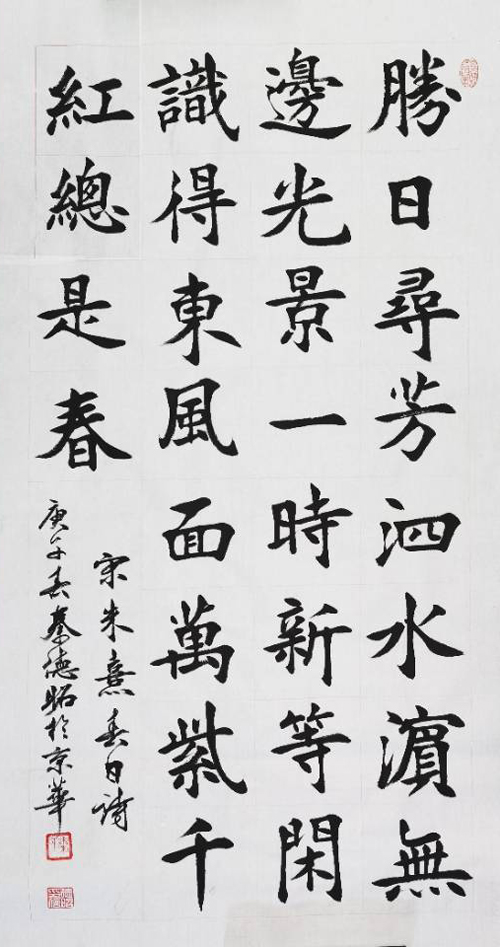 勝日尋芳泗水濵無
邊光景一時新等閑
識得東風面萬紫千
紅總是春
宋朱熹春日詩
庚午春秦德昭於京華